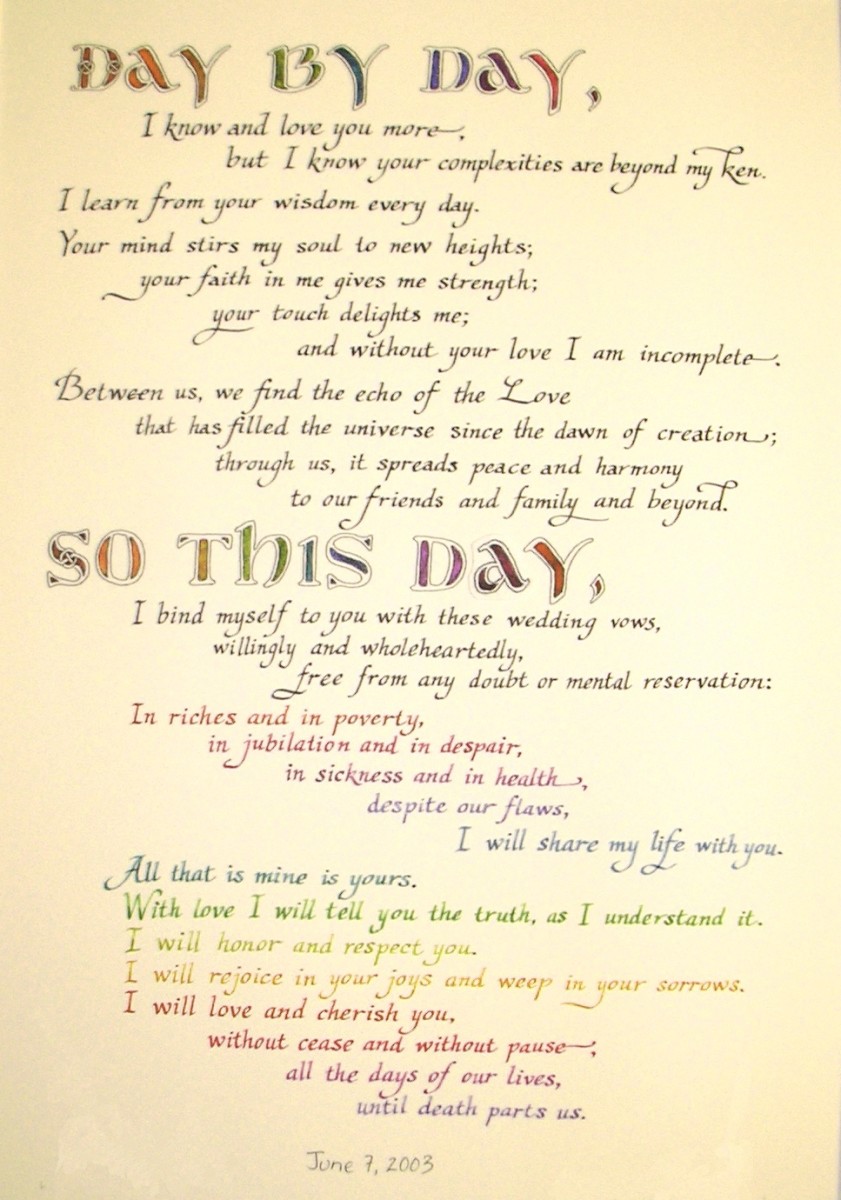 DAY BY DAY,
I know and love you more,
but I know your complexities are beyond my ken.
I learn from your wisdom every day.
Your mind stirs my soul to new heights;
your faith in me gives me strength;
your touch delights me;
and without your love I am incomplete.
Between us, we find the echo of the Love
that has filled the universe since the dawn of creation;
through us, it spreads peace and harmony
to our friends and family and beyond.
SO THIS DAY,
I bind myself to you with these wedding vows,
willingly and wholeheartedly,
free from any doubt or mental reservation:
In riches and in poverty,
in jubilation and in despair,
in sickness and in health,
despite our flaws,
I will share my life with you.
All that is mine is yours.
With love I will tell you the truth, as I understand it.
I will honor and respect you.
I will rejoice in your joys and weep in your sorrows.
I will love and cherish you,
without cease and without pause,
all the days of our lives,
until death parts us.
June 7, 2003